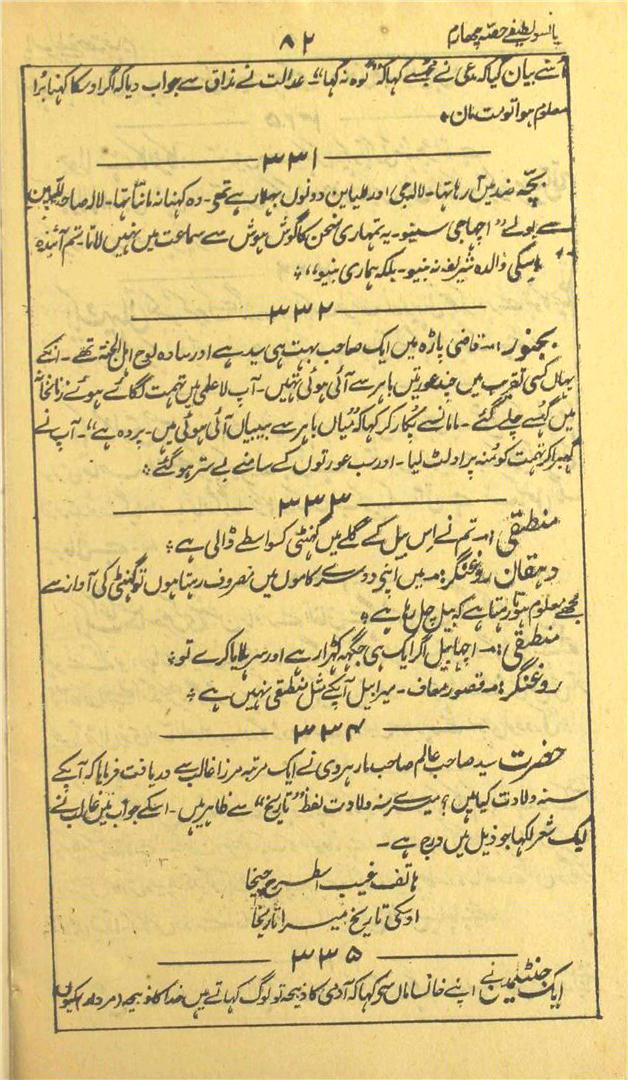 پانسو لطیفے حصہ چہارم
۸۲
اُسنے بیان کیا کہ مدعی نے مجھسے کہا کہ "گوہ نہ کہا"۔ عدالت نے مذاق سے جواب دیا کہ اگر اوسکا کہنا بُرا
معلوم ہوا تو مت مان ۔
۳۳۱
بچّہ ضد میں آ رہا تہا۔ لالہ جی اور للیاین دونوں بہلا رہے تھے۔ وہ کہنا نہ مانتا تہا۔ لالہ صاحب للیاین
سے بولے "اچہا جی سینو۔ یہ تمہاری سخن کا گوش ہوش سے سماعت میں نہیں لاتا۔ تم آئندہ
اِسکی والدہ شریف نہ بنیو۔ بلکہ ہماری بنیو"
۳۳۲
بجنور :۔ قاضی پاڑہ میں ایک صاحب بہت ہی سیدہے اور سادہ لوح اہل الجنۃ تھے۔ انکے
یہاں کسی تقریب میں چند عورتیں باہر سے آئی ہوئی تہیں۔ آپ لاعلمی میں تہمت لگائے ہوئے زنانخانہ
میں گہسے چلے گئے۔ ماما نے پُکار کر کہا کہ "میاں باہر سے بیبیاں آئی ہوئی ہیں۔ پردہ ہے"۔ آپ نے
گہبرا کر تہمت کو مُنہ پر اولٹ لیا۔ اور سب عورتوں کے سامنے بے ستر ہو گئے
۳۳۳
منطقی :۔ تم نے اِس بیل کے گلے میں گہنٹی کسواسطے ڈالی ہے
دہقان روغنگر :۔ میں اپنی دوسرے کاموں میں مصروف رہتا ہوں تو گہنٹی کی آواز سے
مجھے معلوم ہوتا رہتا ہے کہ بیل چل رہا ہے
منطقی :۔ اچہا بیل اگر ایک ہی جگہہ کہڑا رہے اور سر ہلایا کرے تو
روغنگر :۔ قصور معاف۔ میرا بیل آپکے مثل منطقی نہیں ہے
۳۳۴
حضرت سید صاحب عالم صاحب مارہروی نے ایک مرتبہ مرزا غالب سے دریافت فرمایا کہ آپکے
سنہ ولادت کیا ہیں؟ میرے سنہ ولادت لفظ "تاریخ" سے ظاہر ہیں۔ اسکے جواب میں غالب نے
ایک شعر لکہا جو ذیل میں درج ہے۔
ہاتف غیب اسطرح چیخا
اوسکی تاریخ میرا تاریخا
۳۳۵
ایک جنٹلمین نے اپنے خانساماں سے کہا کہ آدمی کا ذبیحہ تو لوگ کہاتے ہیں خدا کا ذبیحہ (مردار) کیوں